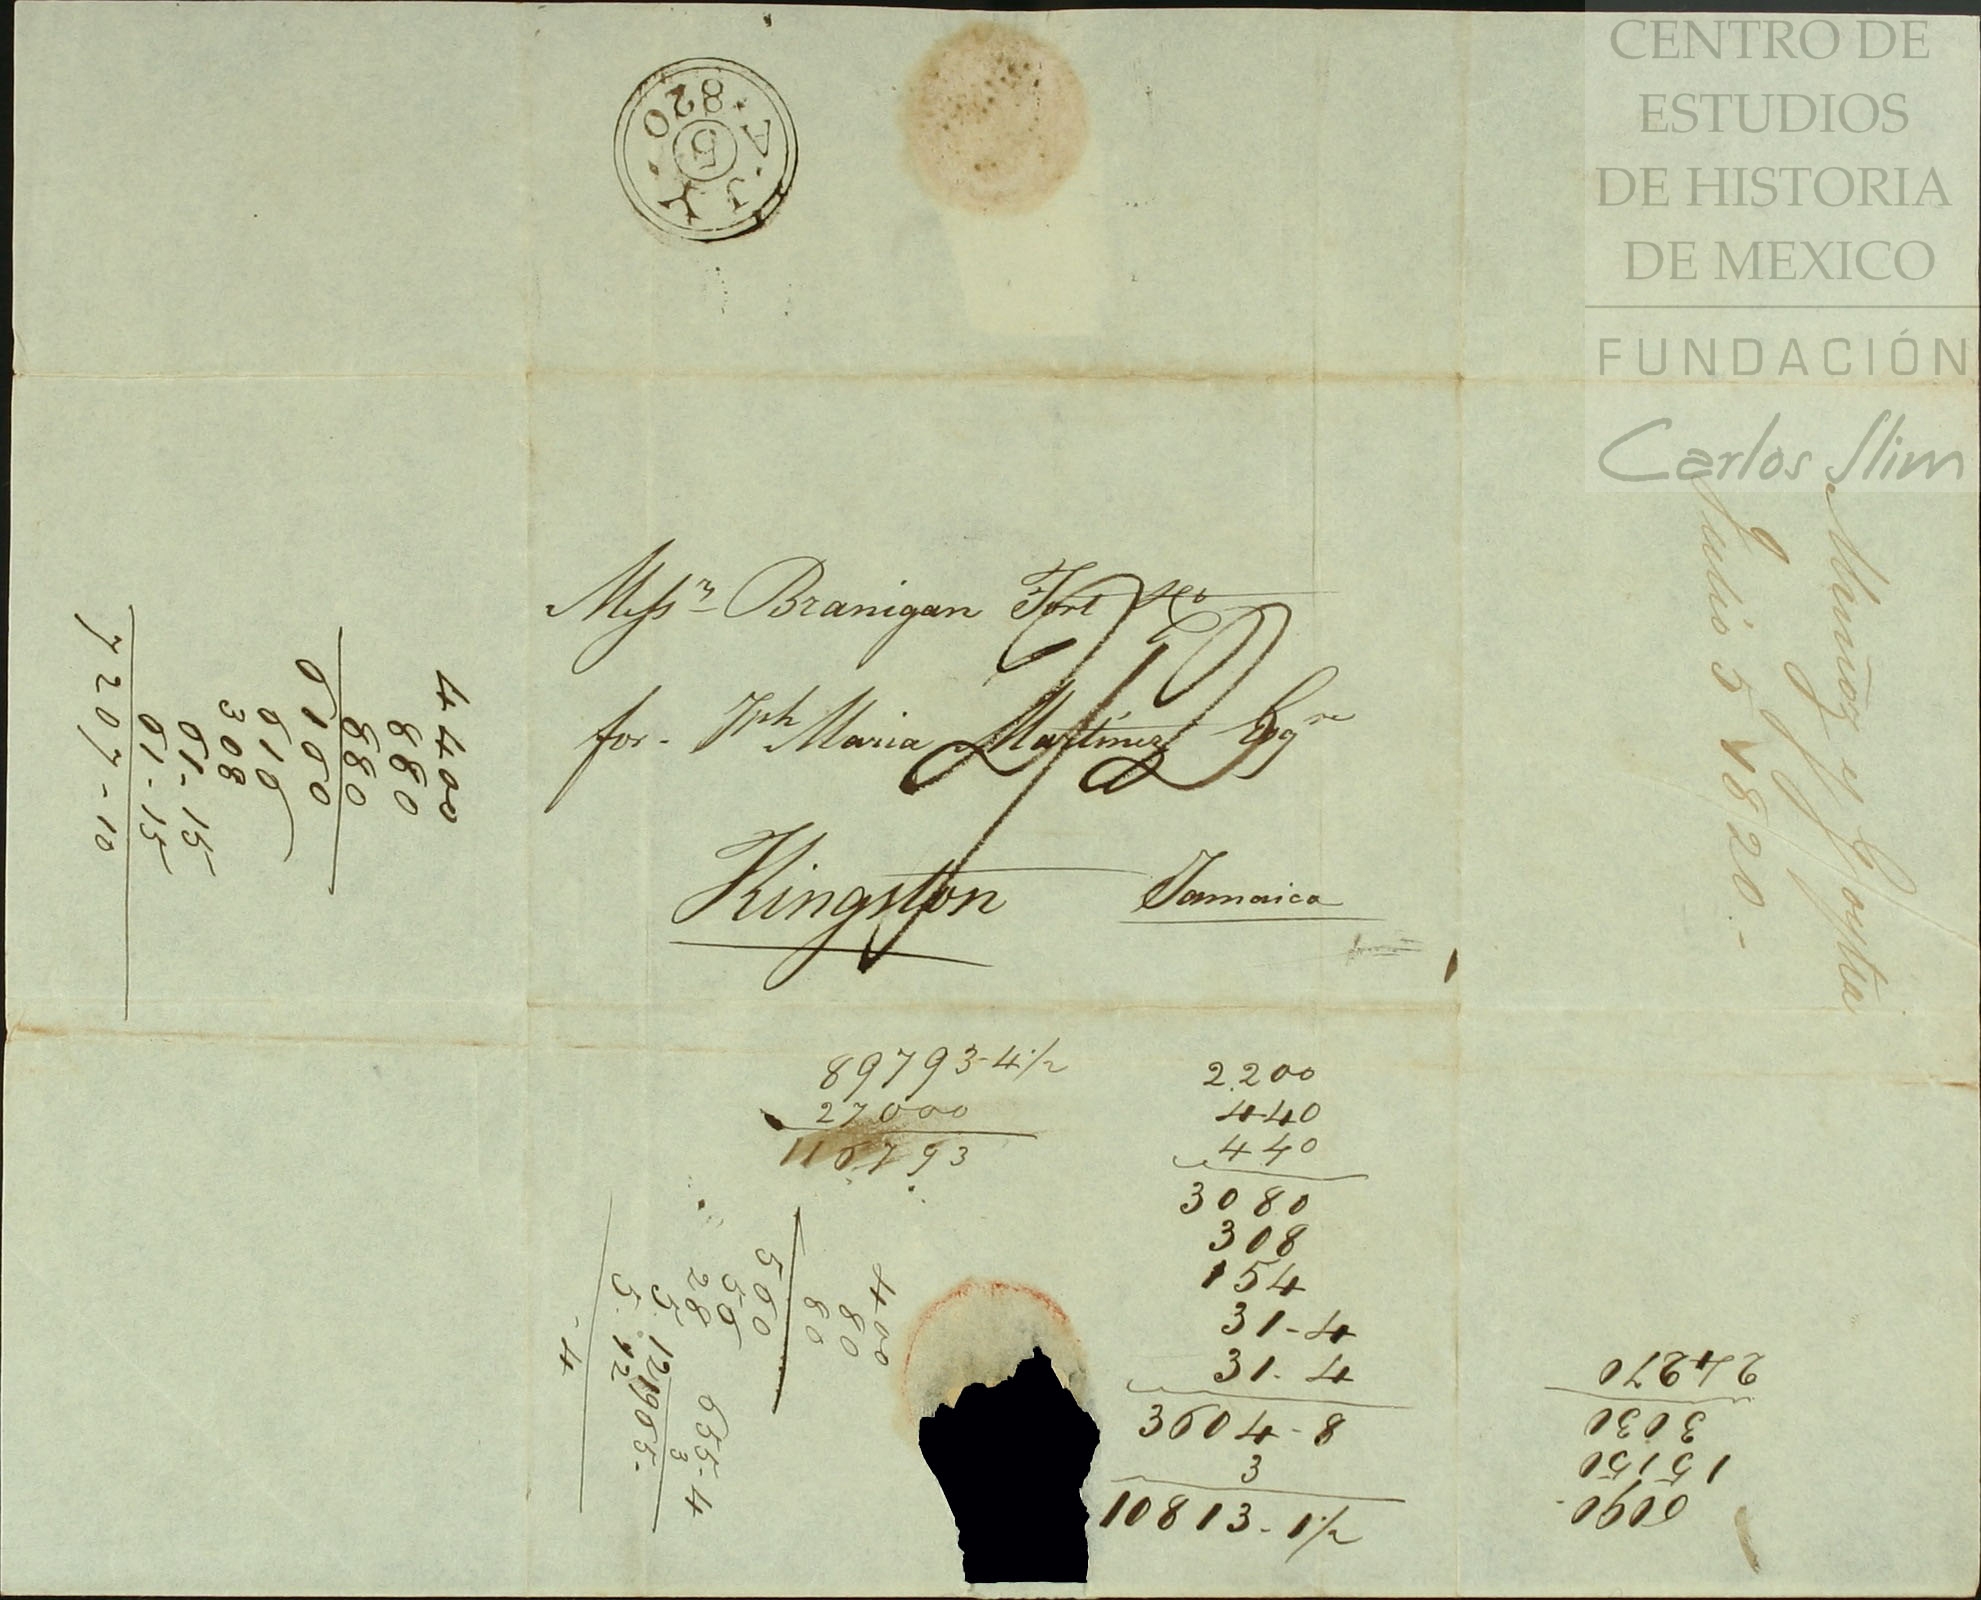 CENTRO DE
ESTUDIOS
DE HISTORIA
DE MEXICO
FUNDACIÓN
Carlos Slim
JY
A
5
820
Messrs Branigan Fort & Co
for Jph Maria Martínez Esqre
Kingston Jamaica
Muñoz y Goytia
Julio 5 1820.-
4400
880
880
6160
616
308
61-15
61-15
7207-10
89793-4½
27000
116793
2.200
440
440
3080
308
154
31-4
31-4
3604-8
3
10813-1½
400
80
80
560
56
28
5.12
5.12
-4
655-4
3
1965-
6090
15150
3030
24270